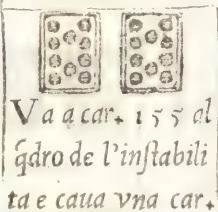 Va a car. 155 al
q̃dro de l'inſtabili
ta e caua vna car.